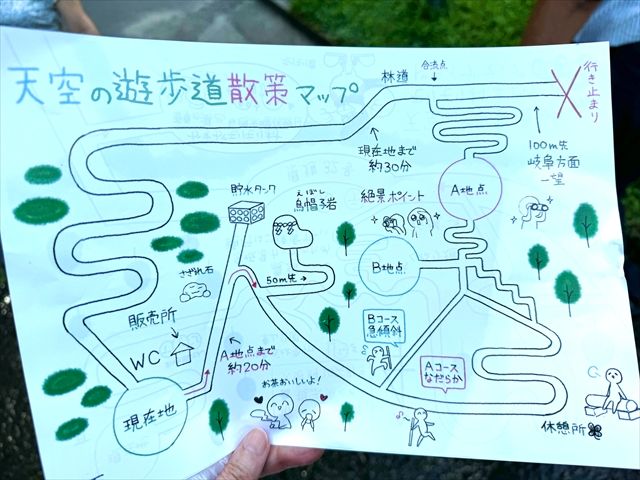 天空の遊歩道散策マップ
林道
合流点
行き止まり
現在地まで
約30分
100m先
岐阜方面
一望
貯水タンク
えぼし
烏帽子岩
絶景ポイント
A地点
B地点
さざれ石
50m先→
販売所
WC
A地点まで
約20分
Bコース
急傾斜
Aコース
なだらか
お茶おいしいよ!
現在地
休憩所